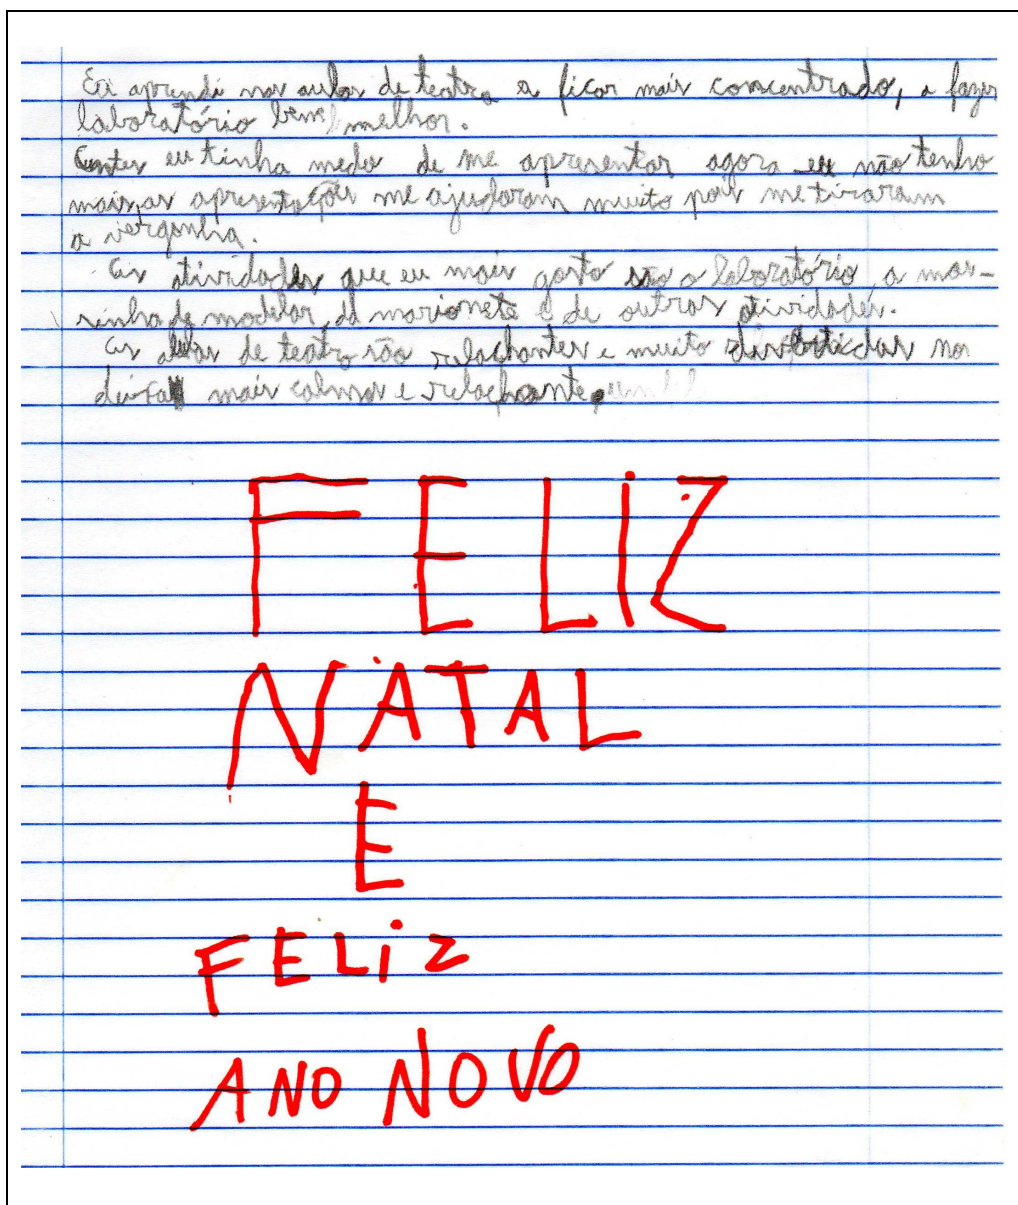 Eu aprendi nas aulas de teatro a ficar mais consentrado, a fazer
laboratório bem melhor.
Antes eu tinha medo de me apresentar agora eu não tenho
mais, as apresentações me ajudaram muito pois me tiraram
a vergonha.
As atividades que eu mais gosto são o laboratório, a mas-
sinha de modelar, da marionete e de outras atividades.
As aulas de teatro são relachantes e muito divertidas nos
deixa mais calmos e relachante.
FELIZ
NATAL
E
FELiz
ANO NOVO